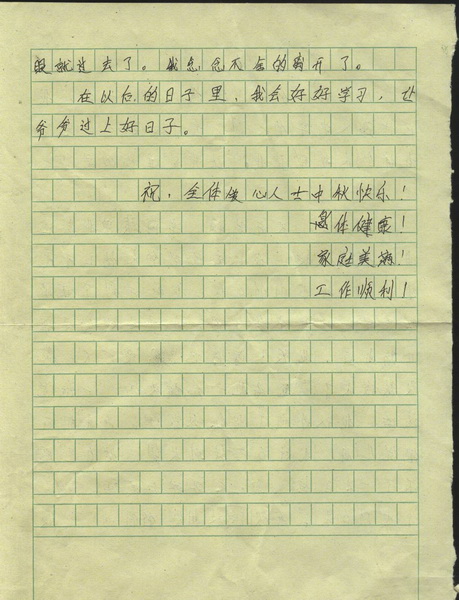 眼就过去了。我不舍的离开了。
在以后的日子里，我会好好学习，让
爷爷过上好日子。
祝：全体爱心人士中秋快乐！
身体健康！
家庭美满！
工作顺利！